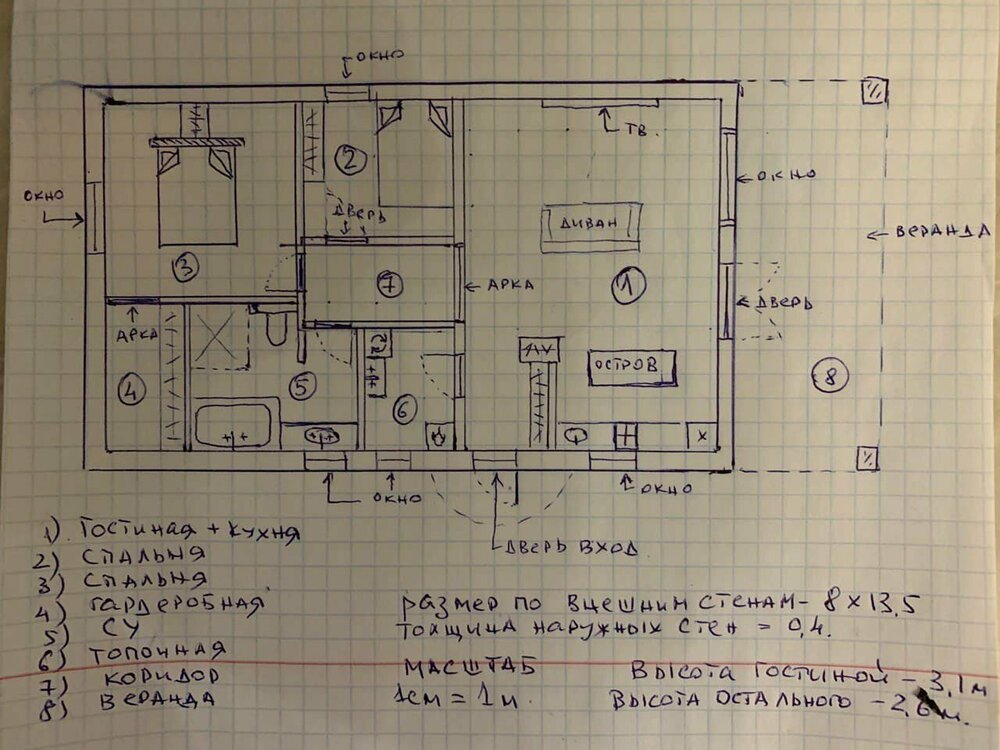 ОКНО
ТВ.
2
ОКНО
ОКНО
ДВЕРЬ
ДИВАН
ВЕРАНДА
3
7
АРКА
1
ДВЕРЬ
АРКА
ОСТРОВ
8
4
5
6
ОКНО
ОКНО
ДВЕРЬ ВХОД
1) Гостиная + кухня
2) СПАЛЬНЯ
3) СПАЛЬНЯ
4) гардеробная
5) СУ
6) топочная
7) коридор
8) веранда
размер по внешним стенам - 8 х 13,5
толщина наружных стен = 0,4.
МАСШТАБ
1см = 1м.
Высота гостиной - 3,1м
Высота остального - 2,6м.